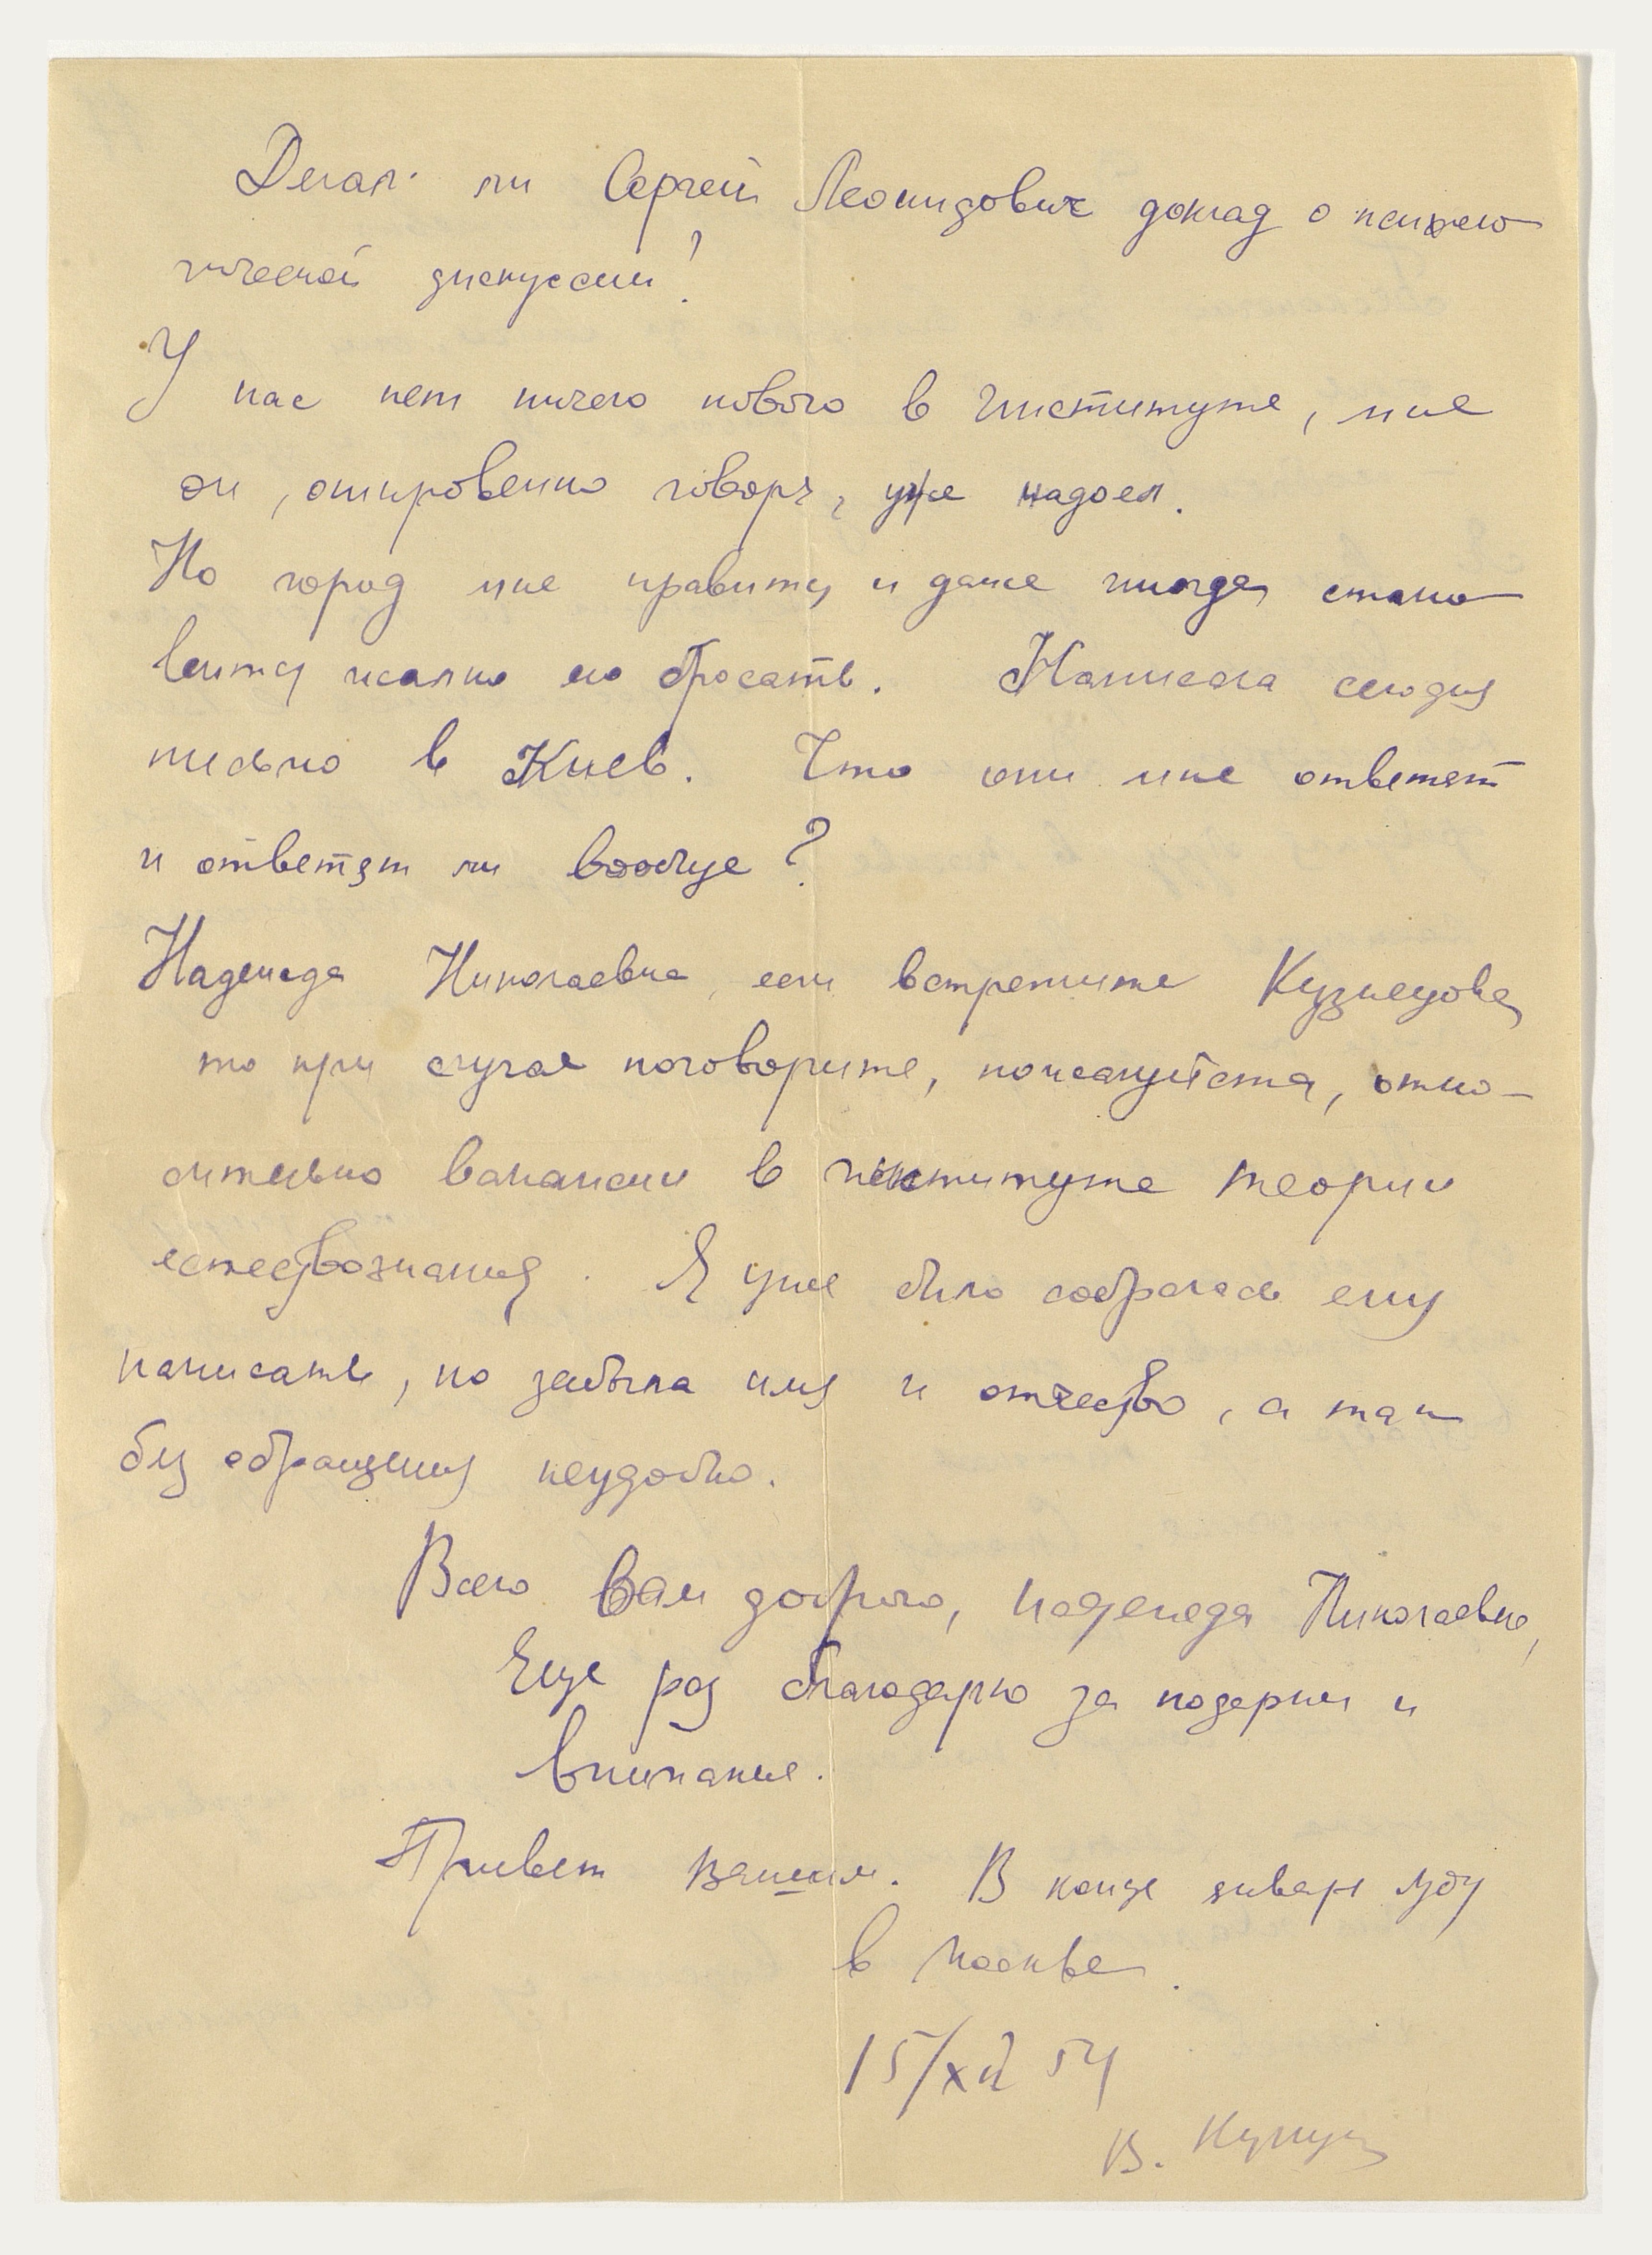 Делал ли Сергей Леонидович доклад о психоло
гической дискуссии?
У нас нет ничего нового в институте, мне
он, откровенно говоря, уже надоел.
Но город мне нравится и даже иногда стано
вится жалко его бросать. Написала сегодня
письмо в Киев. Что они мне ответят
и ответят ли вообще?
Надежда Николаевна, если встретите Кузнецова,
то при случае поговорите, пожалуйста, отно-
сительно вакансии в институте теории
естествознания. Я уже было собралась ему
написать, но забыла имя и отчество, а так
без обращения неудобно.
Всего Вам доброго, Надежда Николаевна,
Еще раз благодарю за и
внимание.
Привет Вашим. В конце января буду
в Москве.
15/XII 54
В.